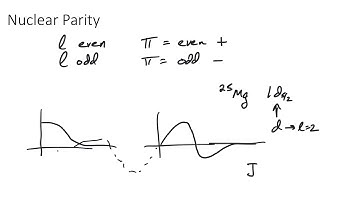 Nuclear Parity
l even π = even +
l odd π = odd -
²⁵Mg 1d₉₂
↑
d → l=2
J